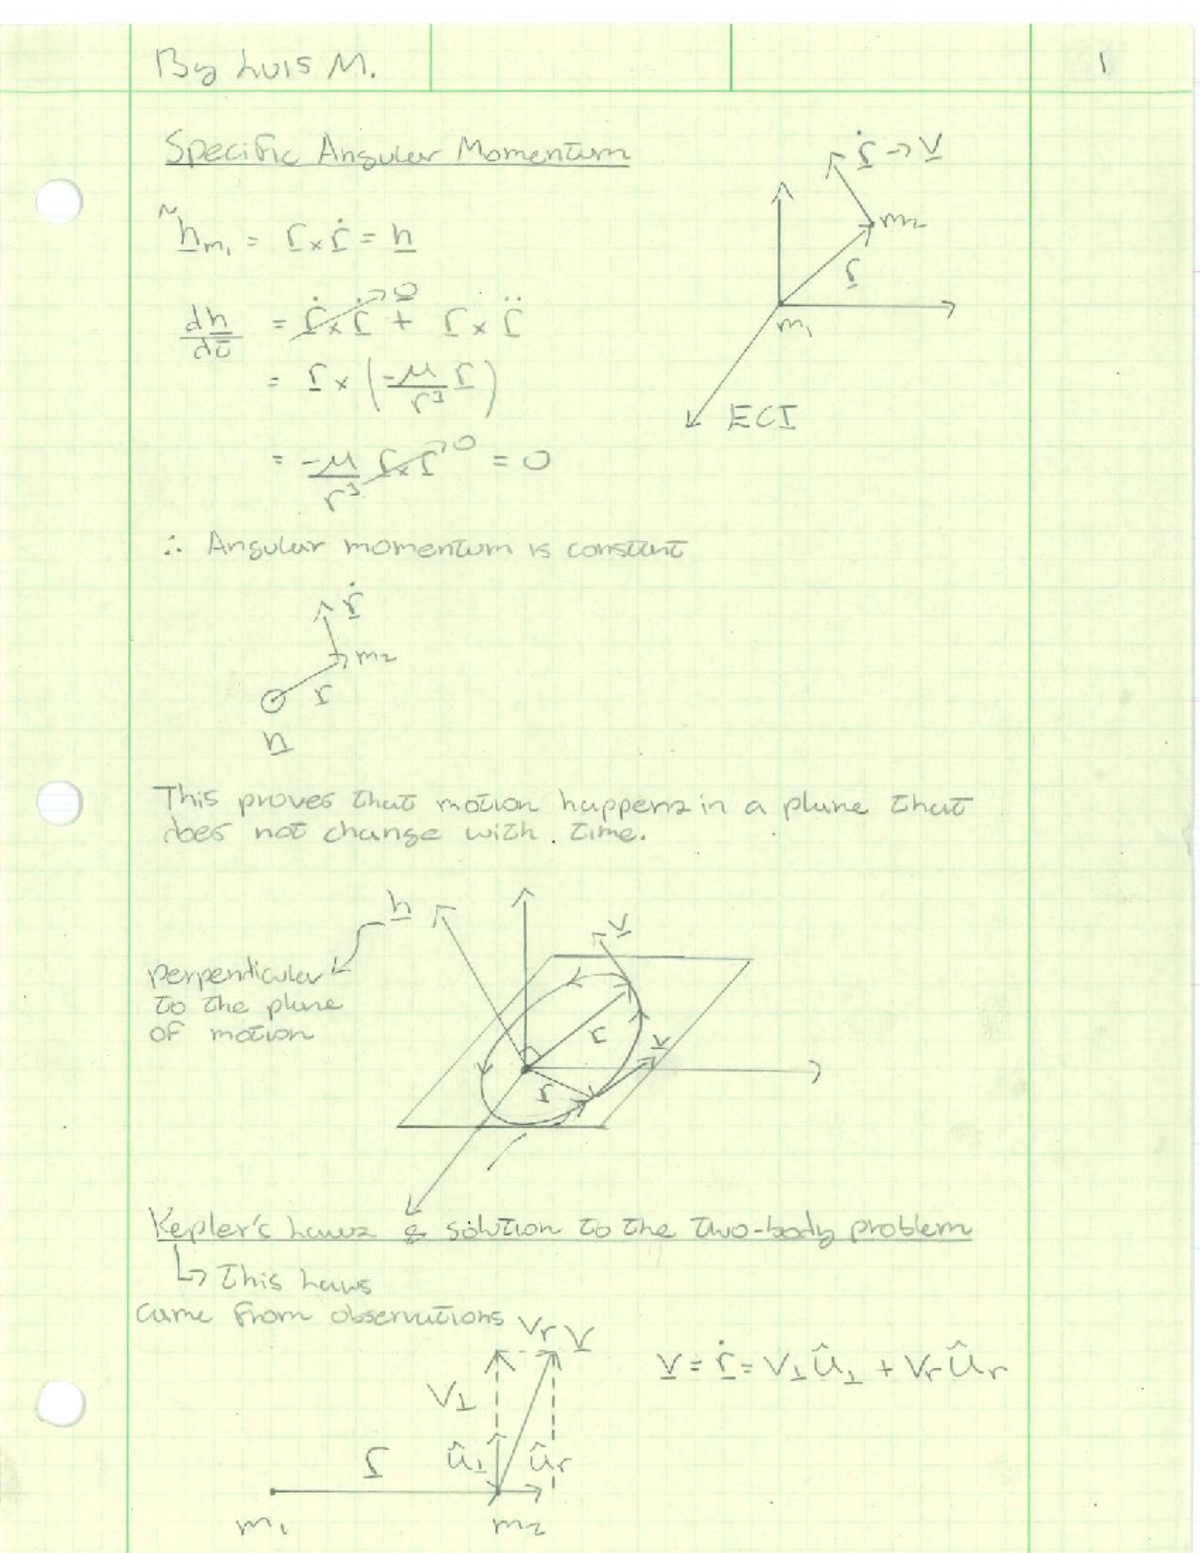 By Luis M.
1
Specific Angular Momentum
~h̲m₁ = r̲ × ṙ̲ = h̲
ṙ̲ → v̲
m₂
r̲
m₁
ECI
dh̲/dt = ṙ̲ × ṙ̲ → 0 + r̲ × r̲̈
= r̲ × (-μ/r³ r̲)
= -μ/r³ r̲ × r̲ → 0 = 0
∴ Angular momentum is constant
ṙ̲
m₂
r̲
h̲
This proves that motion happens in a plane that
does not change with. time.
h̲
v̲
perpendicular
to the plane
of motion
r̲
v̲
r̲
Kepler's Laws & solution to the two-body problem
↳ This laws
came from observations
Vr v̲
v̲ = ṙ̲ = V⊥û⊥ + Vrûr
V⊥
r̲ û⊥ ûr
m₁ m₂